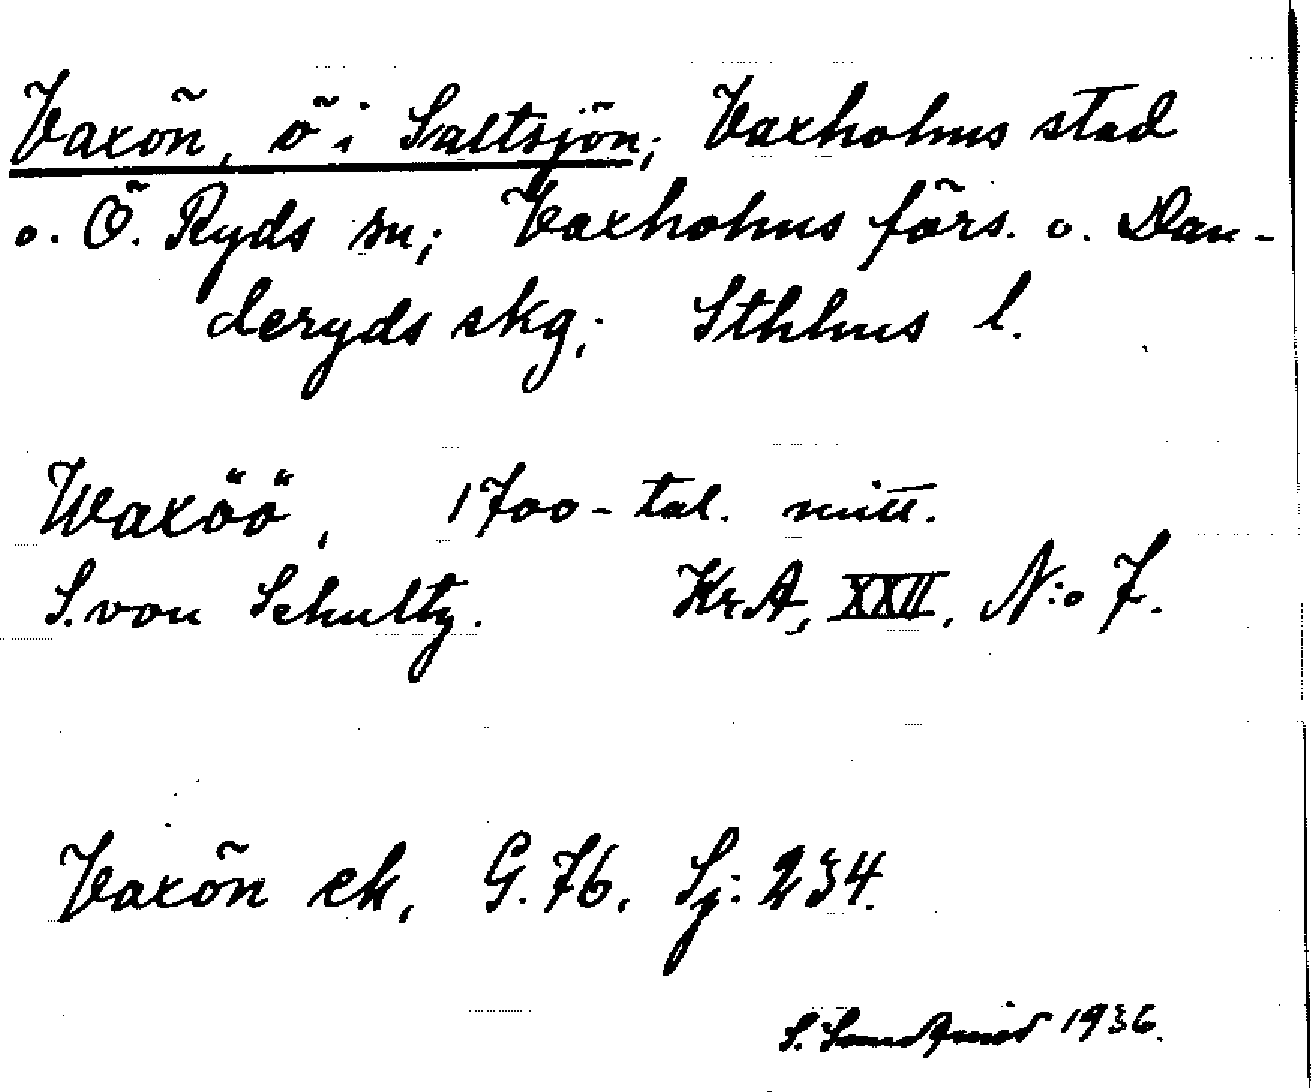 Vaxön, ö i Saltsjön; Vaxholms stad
o. Ö. Ryds sn; Vaxholms förs. o. Dan-
deryds skg; Sthlms l.
Waxöö, 1700-tal. mitt.
S. von Schultz. Kr.A, XXII, N:o 7.
Vaxön ek, G. 76. Sj: 234.
S. Sandqvist 1936.